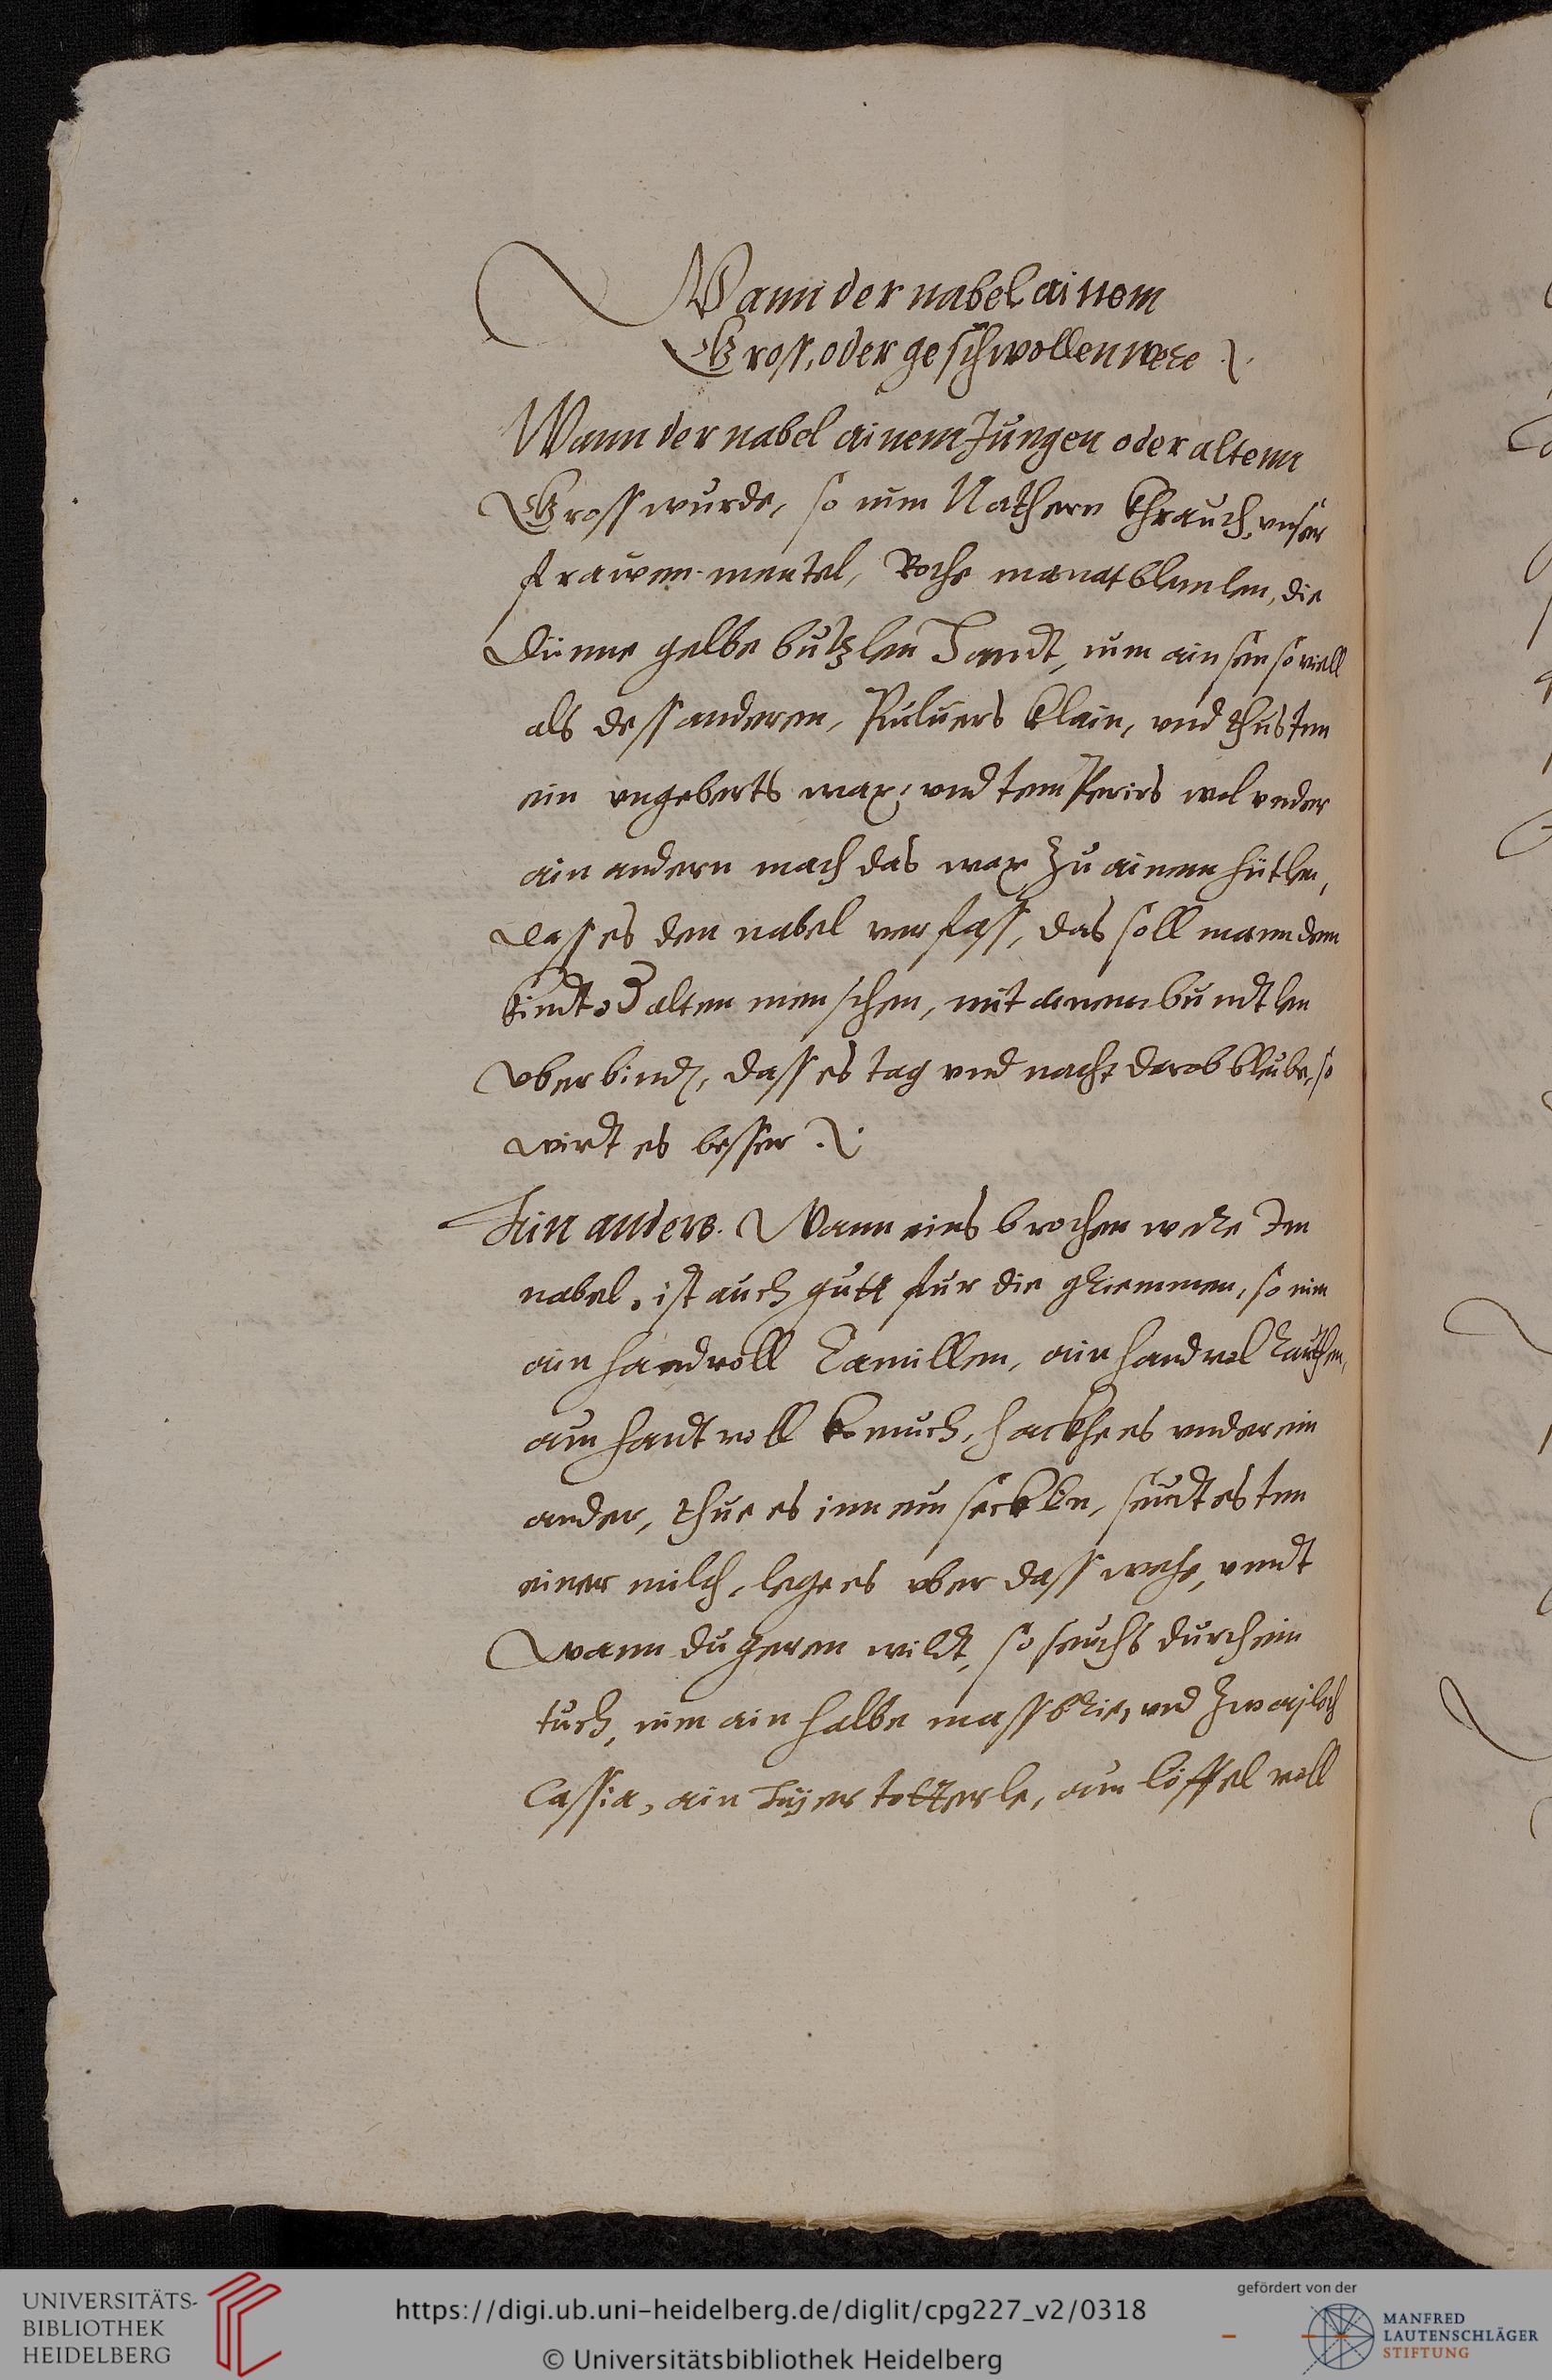 Wann der nabel ainem
Gross, oder geschwollen were
Wann der nabel ainem Jungen oder altenn
Gross wurde, so nim Nathern khrauch, vnser
frauwen mentel, Rothe manatblemlen, die
dünne gelbe butzlen handt, nim ains so viell
als dess anderen, Puluers klain, vnd thus Inn
ein vngeberts wax, vnd temPerirs wol vnder
ain andern mach das wax zu ainem hütlen,
dass es den nabel verfass, das soll mann dem
kindt od alten menschen, mit ainem bundtlen
vberbind, dass es tag vnd nacht darob bleibe, so
wirdt es besser
Ain anders. Wann eins brochen were Im
nabel, ist auch gutt fur die griemmen, so nim
ain handvoll Camillen, ain handvol Rauthen,
ain handt voll kemich, hackhe es vnder ein
ander, thue es inn ein secklin, seudt es Inn
einer milch, lege es vber dass wehe, vnndt
wann du geren wildt, so seuchs durch ein
tuch, nim ain halbe mass brie, vnd zway loth
Cassia, ain Eyer totterle, ain löffel voll
UNIVERSITÄTS-
BIBLIOTHEK
HEIDELBERG
https://digi.ub.uni-heidelberg.de/diglit/cpg227_v2/0318
© Universitätsbibliothek Heidelberg
gefördert von der
MANFRED
LAUTENSCHLÄGER
STIFTUNG